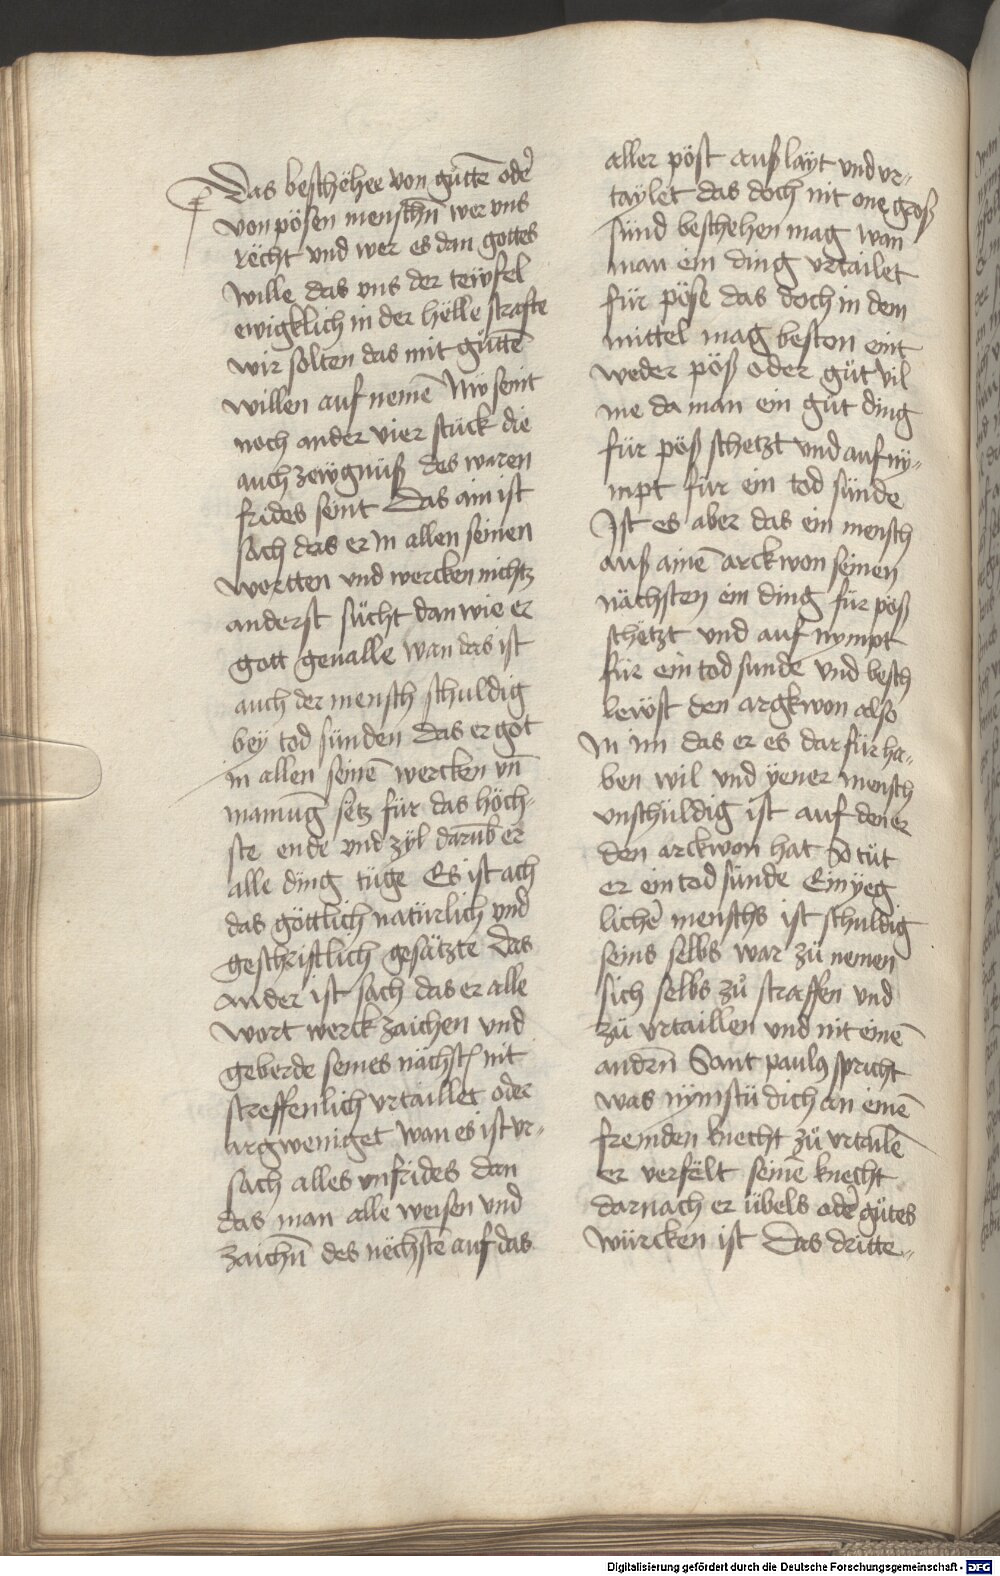 Das beschehee von gůttē odē
von pösen menschn̄ wer vns
recht vnd wer es dan gottes
wille das vns der tewfel
ewigklich in der helle strafte
wir solten das mit gůttē
willen auf nemē Nw seint
noch ander vier stuck die
auch zewgnuß des waren
frides seint Das ain ist
sach das er in allen seinen
wortten vnd wercken nichtz
anderst sücht dan wie er
gott geualle wan das ist
auch der mensch schuldig
bey tod sünden das er got
in allen seinē wercken vn̄
mainuḡ setz für das höch-
ste ende vnd zyl darūb er
alle ding tüge Es ist ach
das göttlich natürlich vnd
geschriftlich gesätzte Das
ander ist sach das er alle
wort werck zaichen vnd
geberde seines nächst nit
streffenlich vrtaillet oder
argweniget wan es ist vr-
sach alles vnfrides dan
das man alle weisen vnd
zaichn̄ des nechstē auf das
aller pöst auß layt vnd vr-
taylet das doch nit one groß
sünd beschehen mag wan
man ein ding vrtailet
für pöse das doch in dem
mittel mag beston eint
weder pöß oder gůt vil
me da man ein gůt ding
für pöß schetzt vnd auf ny-
mpt für ein tod sünde
Ist es aber das ein mensch
auß ainē arckwon seinen
nächsten ein ding für pöß
schetzt vnd auf nympt
für ein tod sunde vnd besch
lewst den argkwon also
in im das er es dar für ha-
ben wil vnd yener mensch
vnschuldig ist auf den er
den arckwon hat So tüt
er ein tod sünde Ein yeg
lichē menschs ist schuldig
seins selbs war zů nemen
sich selbs zů straffen vnd
zů vrtaillen vnd nit einē
andrn̄ Sant paulꝰ spricht
was nymstu dich an einē
fremden knecht zů vrtailē
er verfelt seinē knecht
darnach er übels odē gůtes
würcken ist Das dritte-
Digitalisierung gefördert durch die Deutsche Forschungsgemeinschaft - DFG